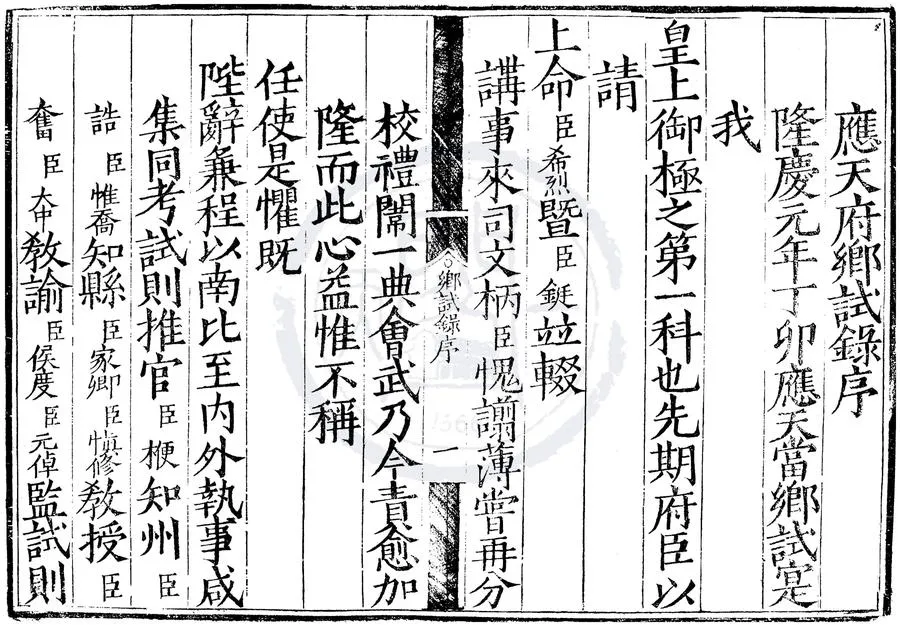 應天府鄉試錄序
隆慶元年丁卯應天當鄉試寔
我
皇上御極之第一科也先期府臣以
請
上命臣希烈暨臣鋌竝輟
講事來司文柄臣愧謭薄嘗再分
鄉試錄序
一
校禮闈一典會武乃今責愈加
隆而此心益惟不稱
任使是懼既
陛辭兼程以南比至内外執事咸
集同考試則推官臣梗知州臣
誥臣惟喬知縣臣家卿臣慎修教授臣
奮臣大中教諭臣侯度臣元倬監試則